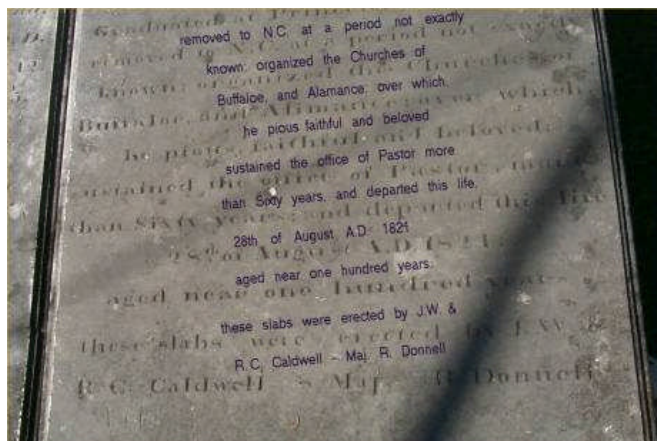 Graduated at
removed to N.C. at a period not exactly
removed to N.C. at a period not
known: organized the Churches of
known: organized the Churches of
Buffaloe, and Alamance; over which,
Buffaloe, and Alimance; over which
he pious faithful and beloved
he pious, faithful, and beloved;
sustained the office of Pastor more
sustained the office of Pastor,
than Sixty years, and departed this life,
than Sixty years; and departed this life
28th of August A.D. 1821
28th of August A.D. 1821:
aged near one hundred years:
aged near one hundred years
these slabs were erected by J.W. &
these slabs were erected by J.W. &
R.C. Caldwell - Maj. R. Donnell
R. C. Caldwell - Maj. R. Donnell